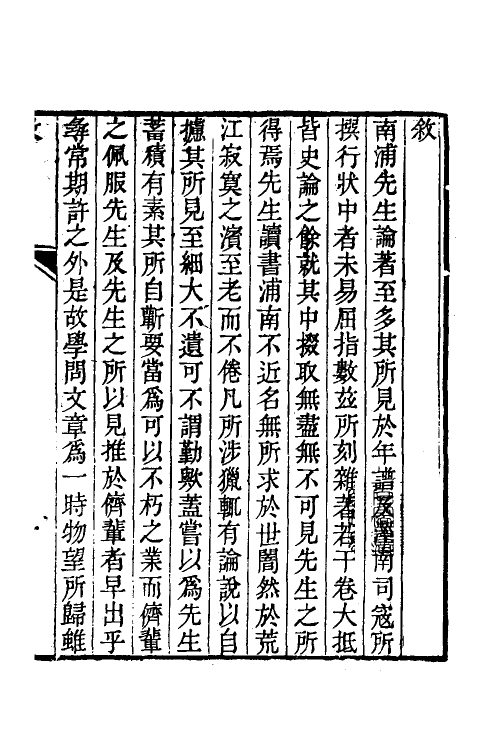 敘
南浦先生論著至多其所見於年譜及溧南司寇所
撰行狀中者未易屈指數玆所刻雜著若干卷大抵
皆史論之餘就其中掇取無盡無不可見先生之所
得焉先生讀書浦南不近名無所求於世闇然於荒
江寂寞之濱至老而不倦凡所涉獵輒有論說以自
攄其所見至細大不遺可不謂勤歟蓋嘗以爲先生
蓄積有素其所自蘄要當爲可以不朽之業而儕輩
之佩服先生及先生之所以見推於儕輩者早出乎
尋常期許之外是故學問文章爲一時物望所歸雖